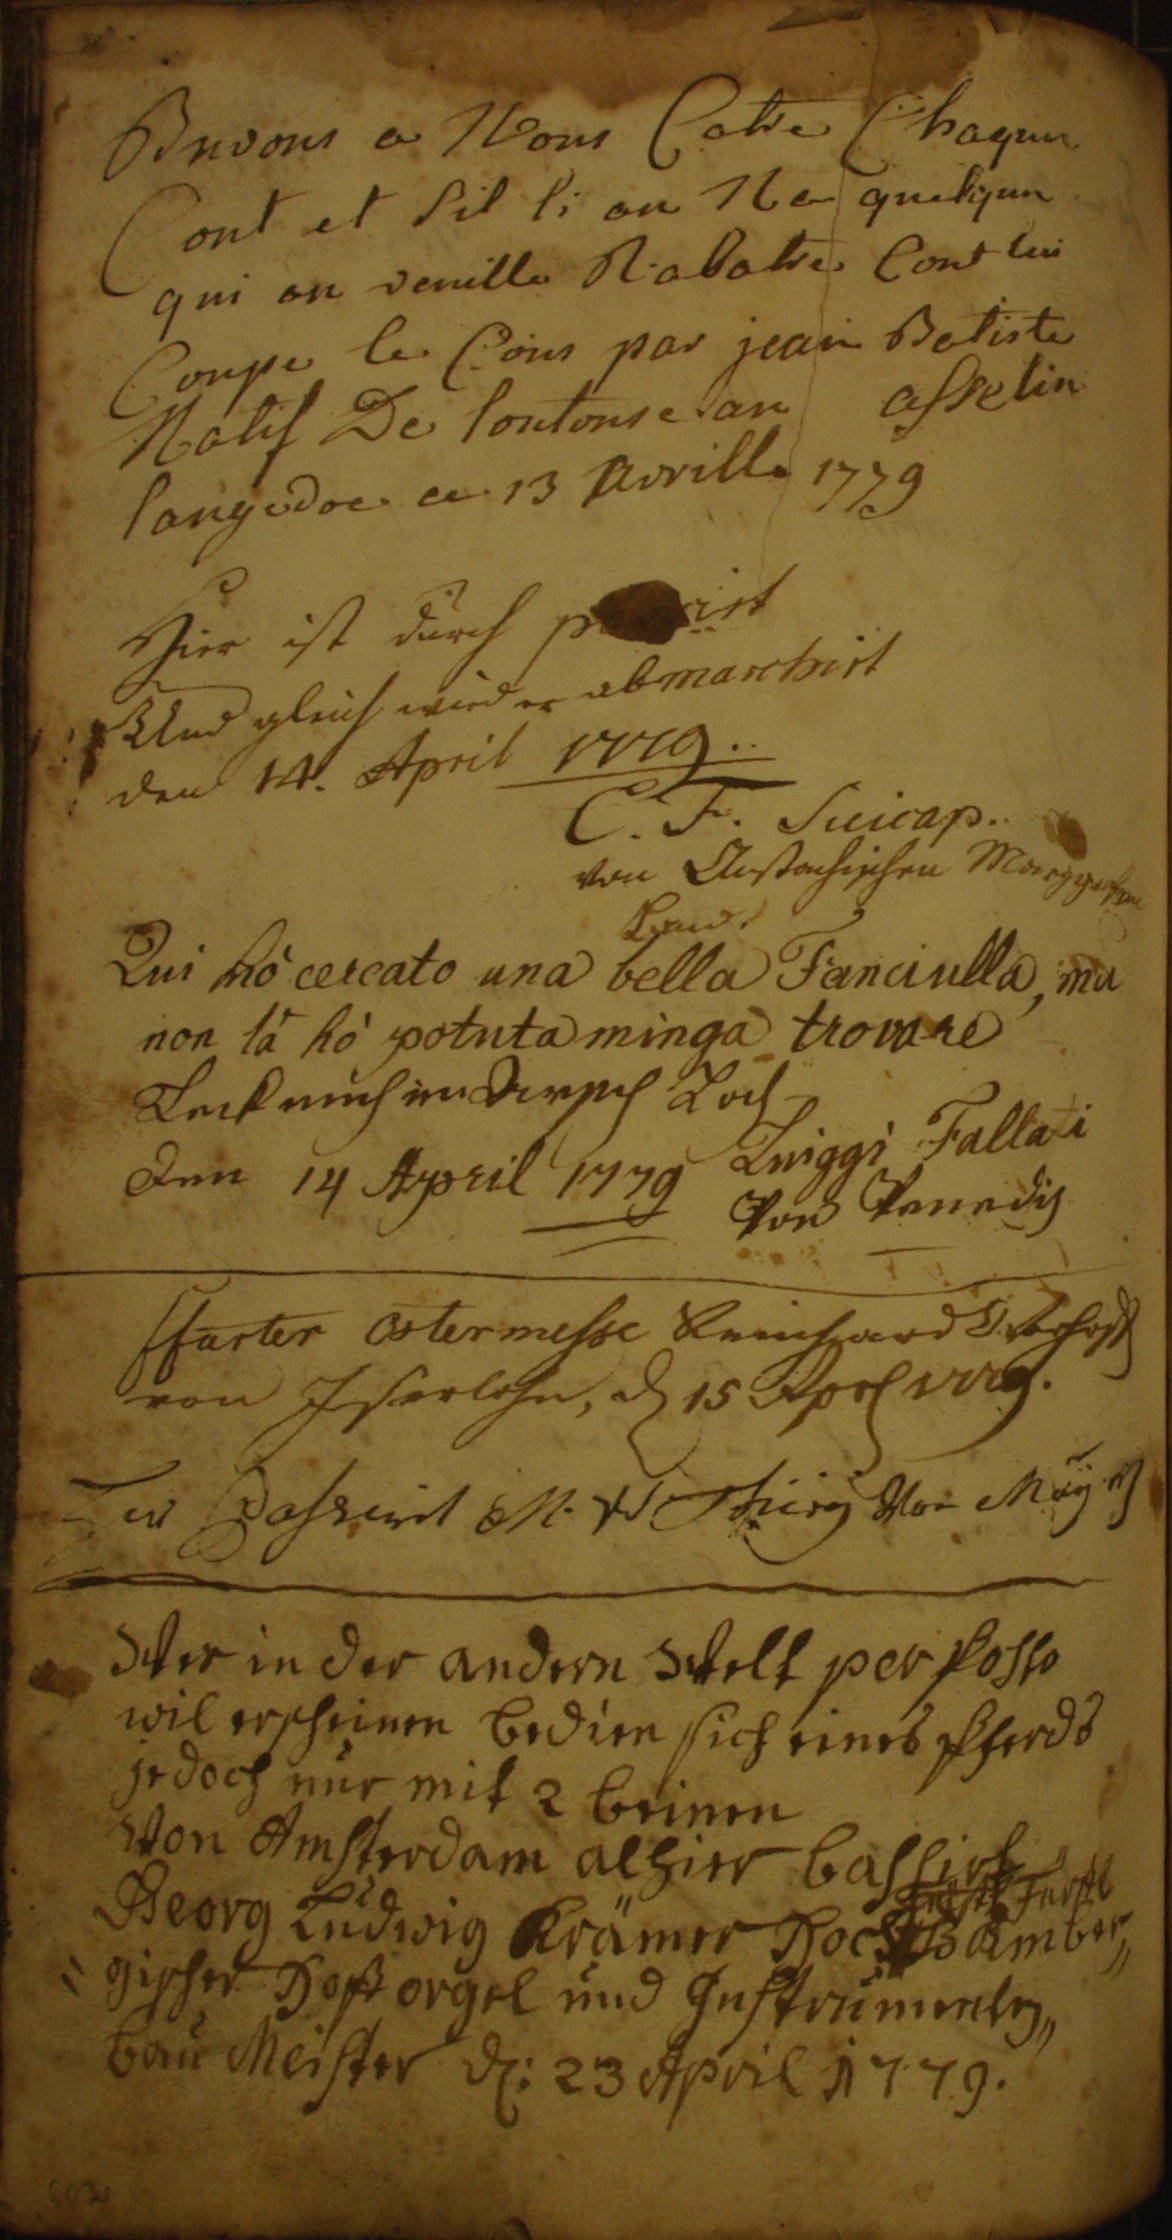 Buvons a Nous Catre Chaqun
Cont et sil li an Na quelqun
qui an veuille Rabatre Cont lui
Coupe le Cous par jean Batiste
Natif De loutouse an asselin
langedoc ce 13 Avrille 1779
Hier ist durch
Und gleich wieder abmarchirt
den 14. April 1779..
C. F.
von Marggrafen
Land.
Qui hò cercato una bella Fanciulla, ma
non la hò potuta minga trovare
Leck mich im Arsch Loch
den 14 April 1779 Luiggi Fallati
Von Venedig
ffurter Ostermesse Reinhard
von Iserlohn, d 15 Apr 1779.
Passirt Von
Wer in der andern Welt per Posto
wil erscheinen bedien sich eines Pferds
jedoch nur mit 2 beinen
Von Amsterdam alhier bassirt
Georg Ludwig Krämer Hoch Fürstl Bamber„
„gischer Hoff orgel und Instrumenten„
bau Meister d: 23 April 1779.